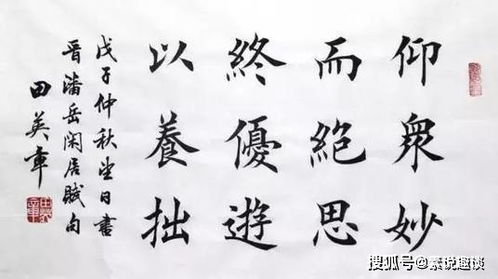 仰衆妙
而絕思
終優遊
以養拙
戊子仲秋望日書
晋潘岳閑居賦句
田英章
搜狐号@素说趣谈